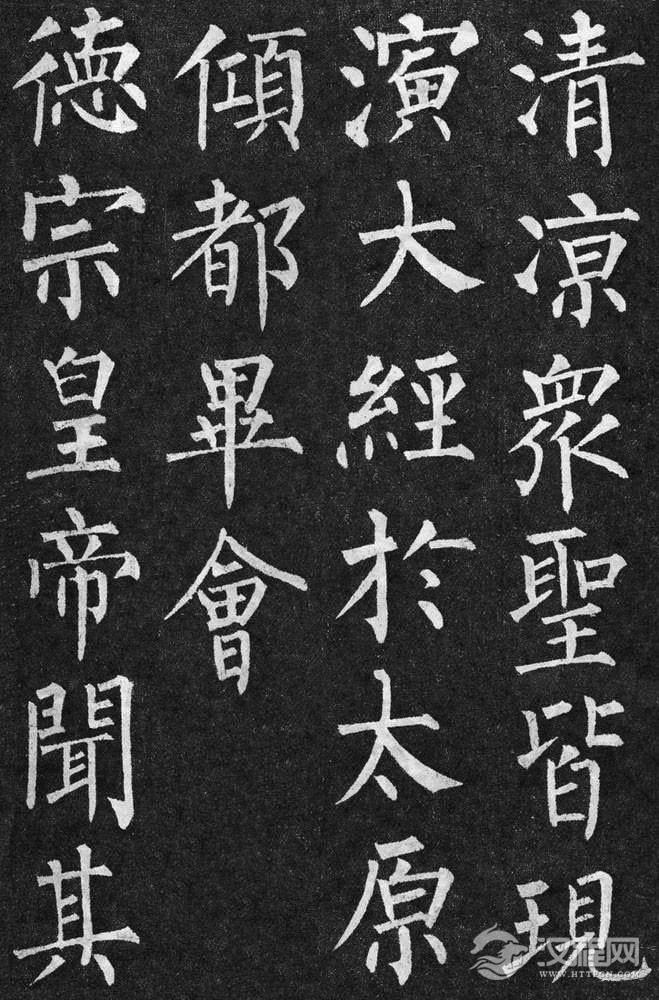 清涼衆聖皆現
演大經於太原
傾都畢會
德宗皇帝聞其
汉程网
WWW.HTTPCN.COM